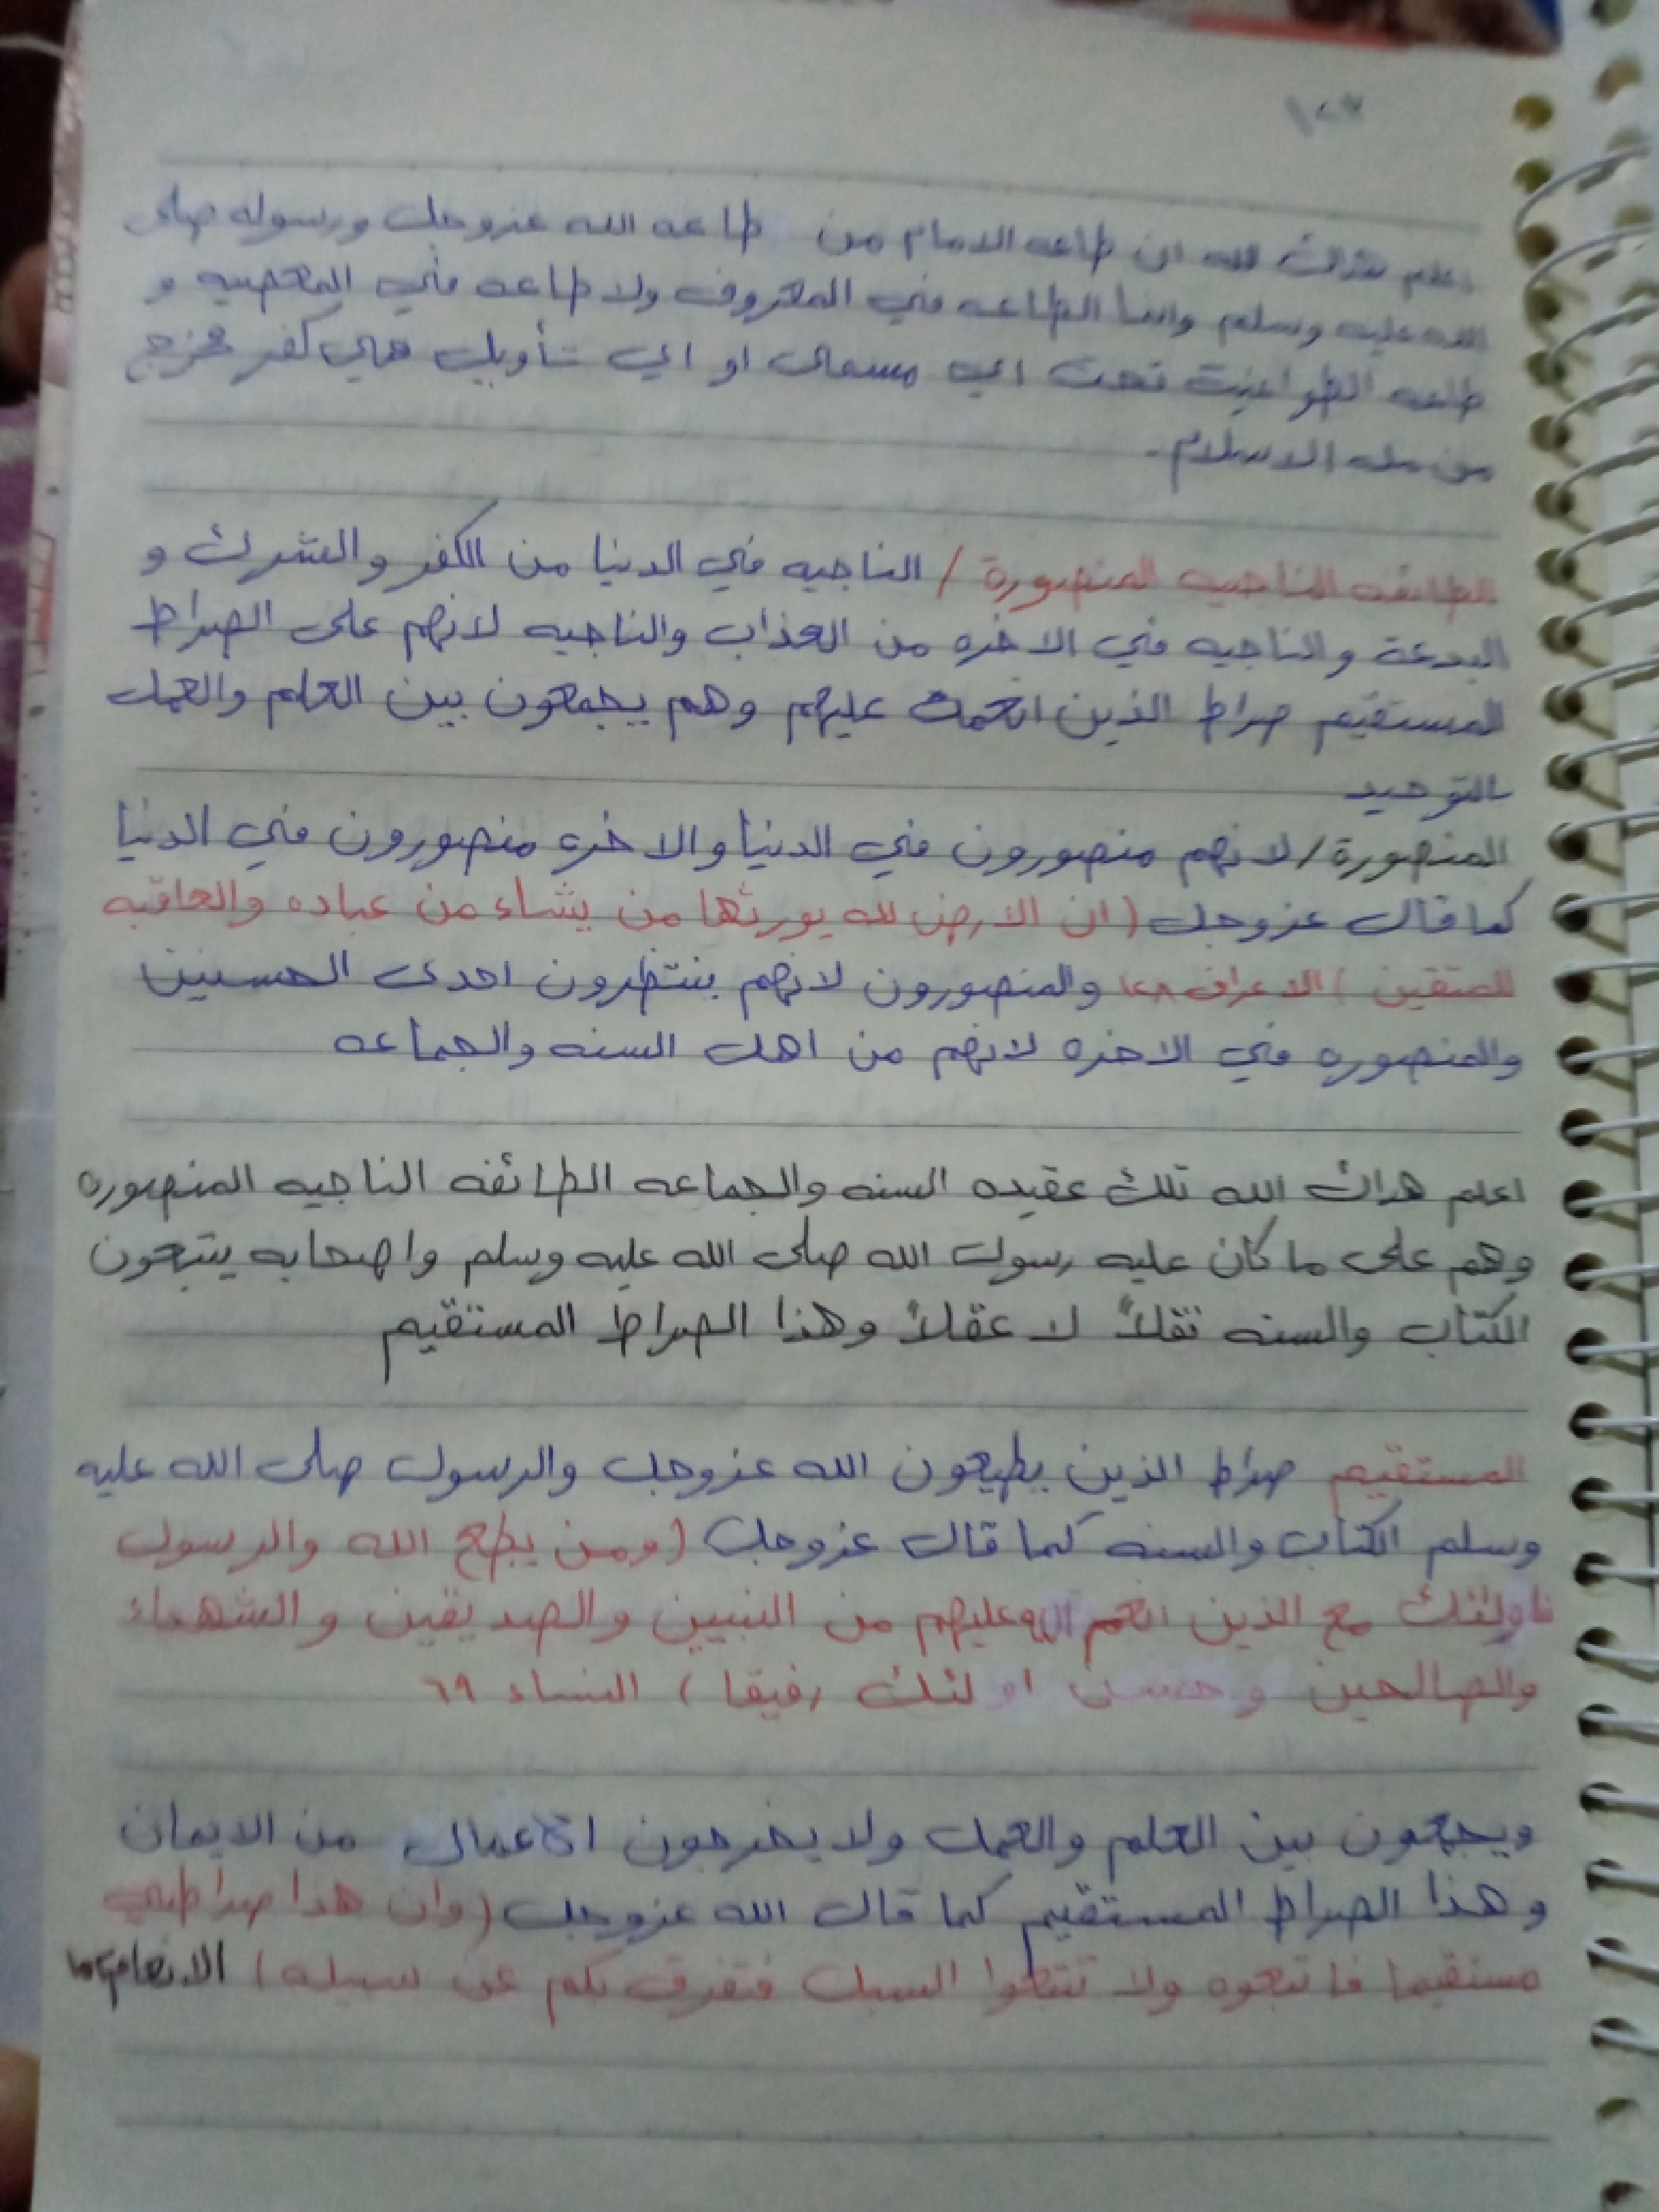 ١٢٧
اعلم هداك الله ان طاعه الامام من طاعه الله عزوجل ورسوله صلى
الله عليه وسلم وانما الطاعه في المعروف ولا طاعه في المعصيه و
طاعه الطواغيت تحت اي مسمى او اي تأويل هي كفر مخرج
من مله الاسلام.
الطائفه الناجيه المنصورة / الناجيه في الدنيا من الكفر والشرك و
البدعة والناجيه في الاخره من العذاب والناجيه لانهم على الصراط
المستقيم صراط الذين انعمت عليهم وهم يجمعون بين العلم والعمل
بالتوحيد
المنصورة / لانهم منصورون في الدنيا والاخره منصورون في الدنيا
كما قال عزوجل (ان الارض لله يورثها من يشاء من عباده والعاقبه
للمتقين) الاعراف ١٢٨ والمنصورون لانهم ينتظرون احدى الحسنيين
والمنصوره في الاخره لانهم من اهل السنه والجماعه
اعلم هداك الله تلك عقيده السنه والجماعه الطائفه الناجيه المنصوره
وهم على ما كان عليه رسول الله صلى الله عليه وسلم واصحابه يتبعون
الكتاب والسنه نقلاً لا عقلاً وهذا الصراط المستقيم
المستقيم صراط الذين يطيعون الله عزوجل والرسول صلى الله عليه
وسلم الكتاب والسنه كما قال عزوجل (ومن يطع الله والرسول
فاولئك مع الذين انعم الله عليهم من النبيين والصديقين والشهداء
والصالحين وحسن اولئك رفيقا) النساء ٦٩
ويجمعون بين العلم والعمل ولا يخرجون الاعمال من الايمان
وهذا الصراط المستقيم كما قال الله عزوجل (وان هذا صراطي
مستقيما فاتبعوه ولا تتبعوا السبل فتفرق بكم عن سبيله) الانعام